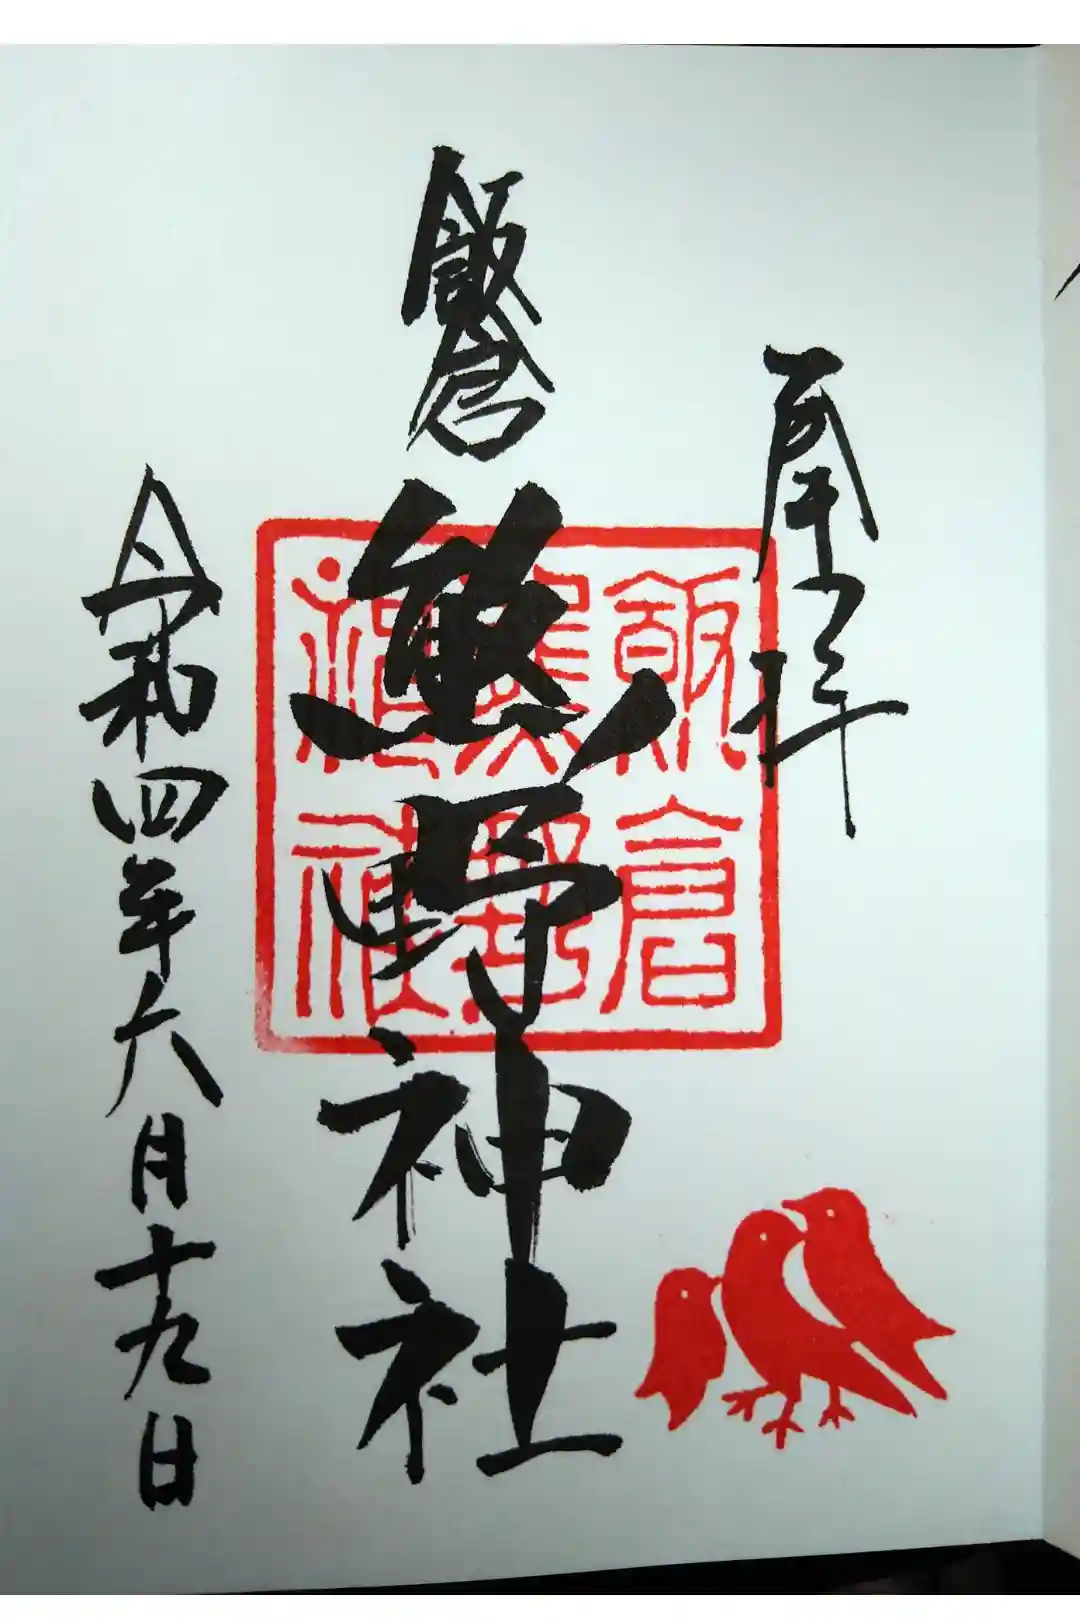 奉拝
飯倉
熊野神社
令和四年六月十九日
飯倉
熊野
神社